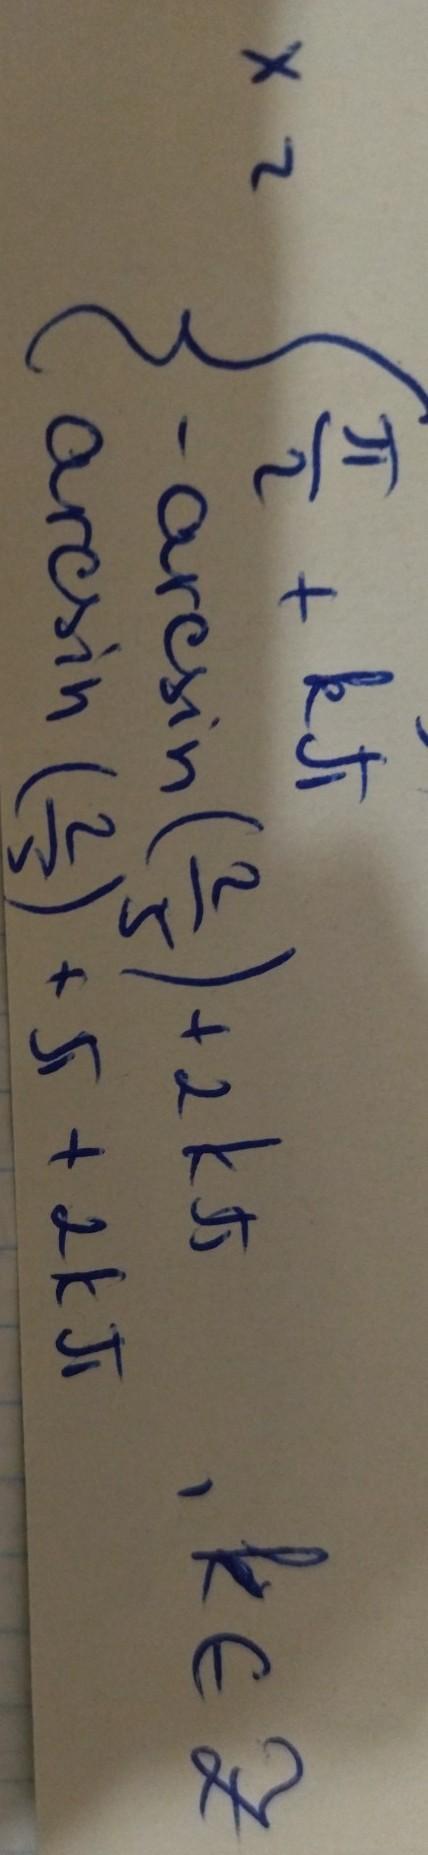 x = { π/2 + kπ
- arcsin (2/5) + 2kπ , k ∈ Z
arcsin (2/5) + π + 2kπ